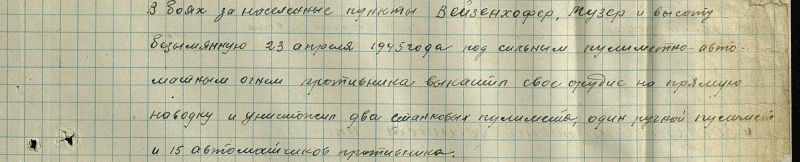 В боях за населенные пункты Вейзенхофер, Музер и высоту
безымянную 23 апреля 1945 года под сильным пулиметно-авто-
матным огнем противника выкатил свое орудие на прямую
наводку и уничтожил два станковых пулимета, один ручной пулимет
и 15 автоматчиков противника.